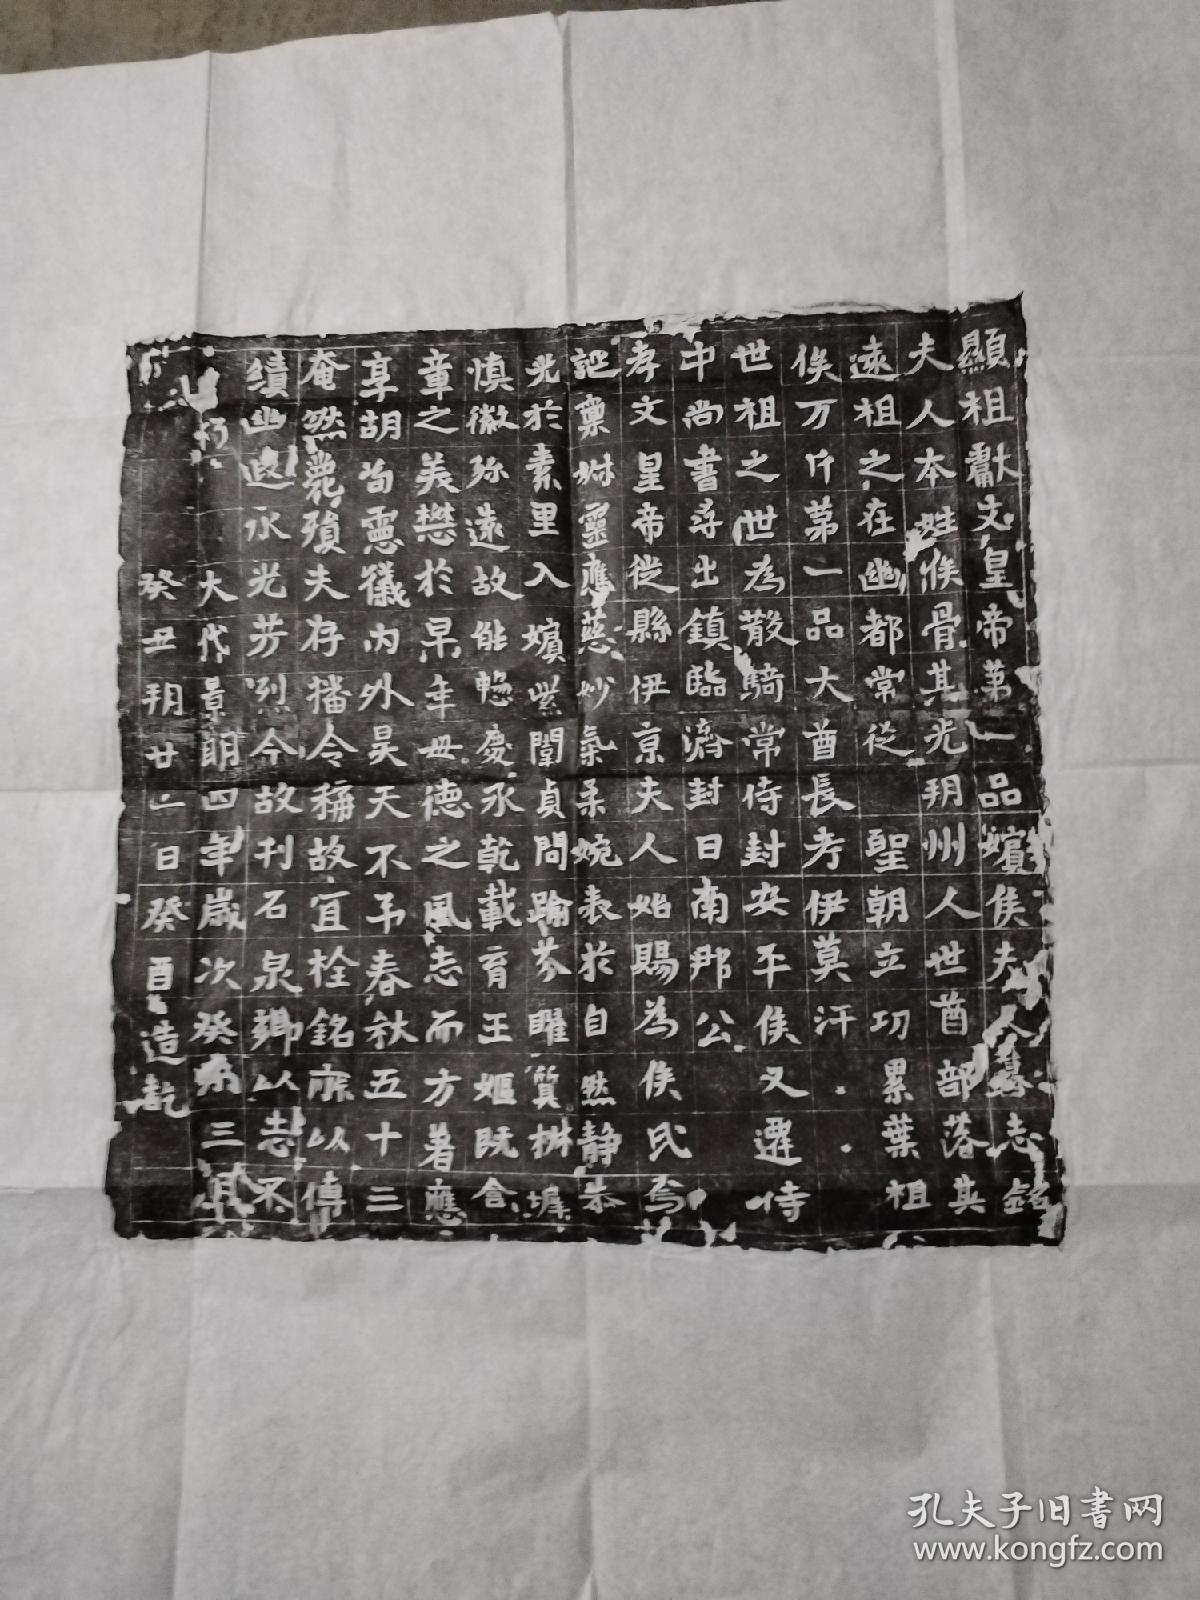 顯祖獻文皇帝第一品嬪侯夫人墓志銘
夫人本姓侯骨其先朔州人世酋部落其
遠祖之在幽都常從聖朝立功累葉祖
俟万斤第一品大酋長考伊莫汗
世祖之世為散騎常侍封安平侯又遷侍
中尚書尋出鎮臨濟封日南郡公
孝文皇帝徙縣伊京夫人始賜為侯氏焉
誕稟姉靈應慈妙氣柔婉表於自然静恭
光於素里入嬪紫闈貞問踰芬曜質椒墀
慎徽弥遠故能惚慶永乾載育王姬既含
章之美懋於早年母德之風志而方著應
享胡考霊儀内外昊天不弔春秋五十三
奄然薨殞夫存播令稱故宜栓銘庥以傅
續幽遐永光芳烈今故刊石泉鄉以志不
朽
大代景明四年歲次癸未三月
癸丑朔廿一日癸酉造訖
孔夫子旧書网
www.kongfz.com